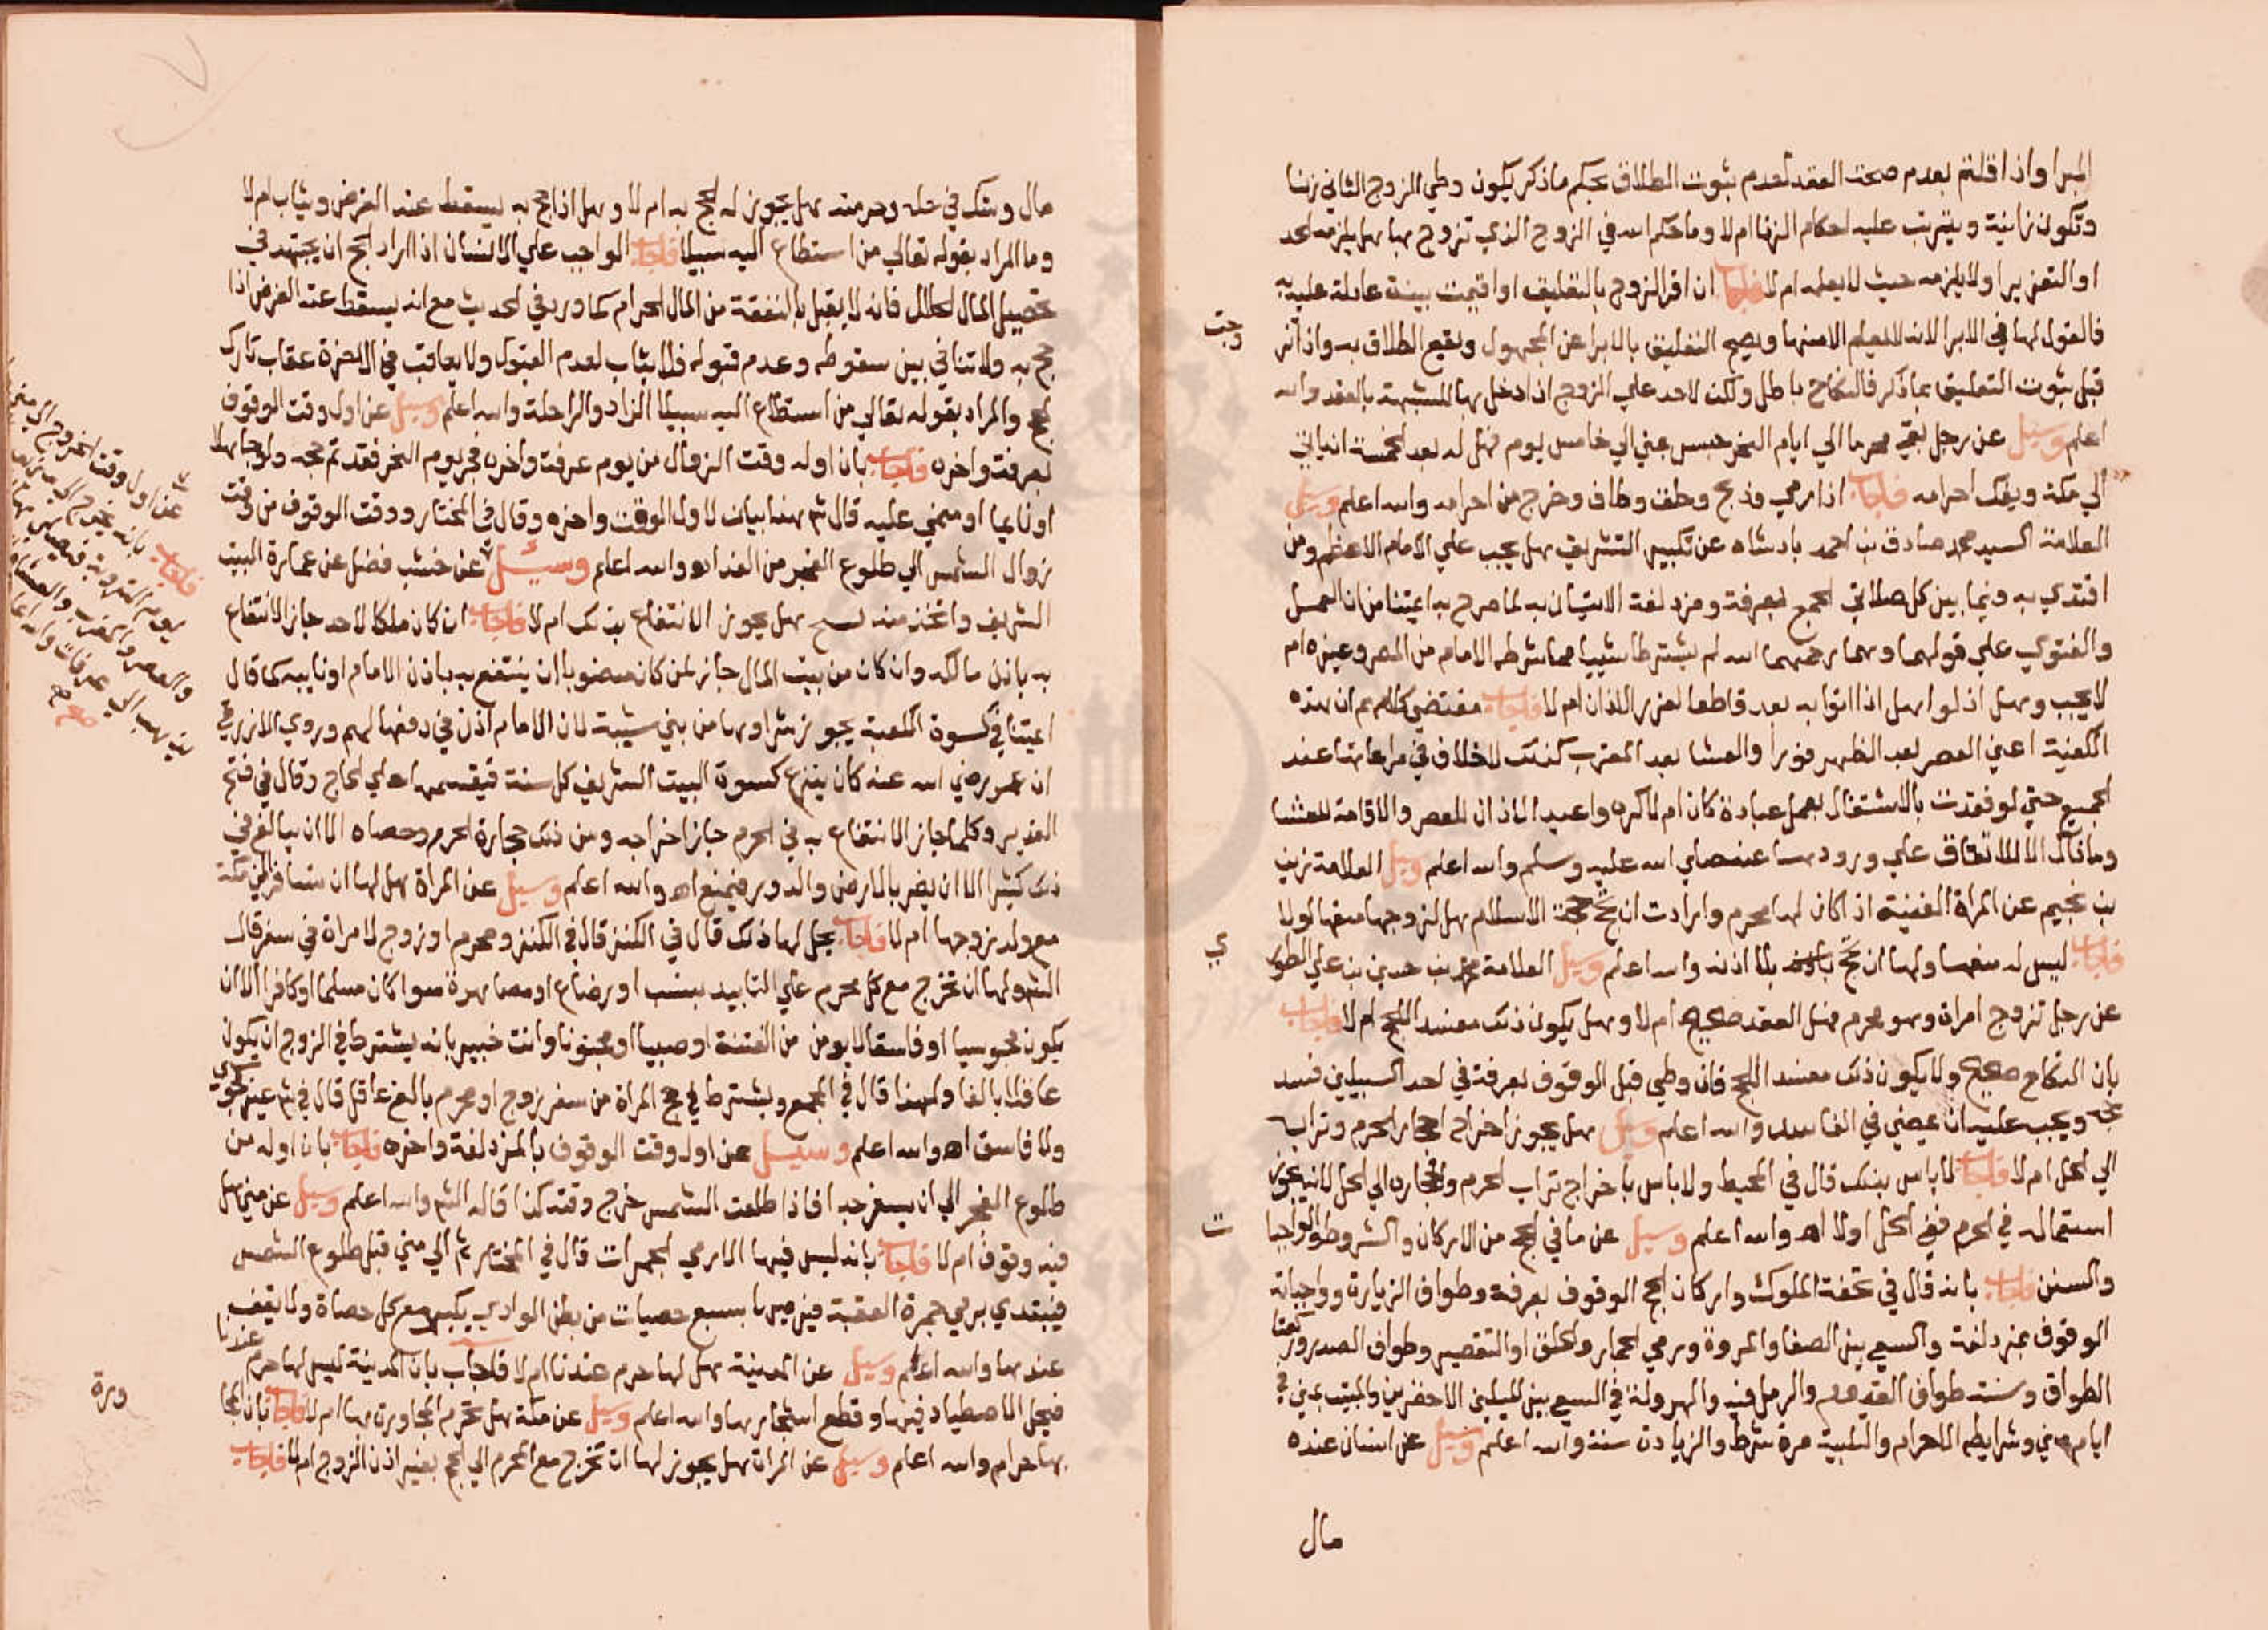 المبرا واذا قلتم بعدم صحة العقد لعدم ثبوت الطلاق بحكم ماذكر يكون وطي الزوج الثاني زنا
وتكون زانية ويترتب عليه احكام الزنا ام لا وما حكم الله في الزوج الذي تزوج بها هل يلزمه الحد
او التعزير او لا يلزمه حيث لا يعلم ام لا فاجاب ان اقر الزوج بالتعليق او اقيمت بينة عادلة عليه به
فالقول لها في الابرا لانه لا يعلم الا منها ويصح التعليق بالابرا عن المجهول ويقع الطلاق به واذا تزوجت
قبل ثبوت التعليق بما ذكر فالنكاح باطل ولكن لا حد علي الزوج اذا دخل بها للشبهة بالعقد والله
اعلم وسيل عن رجل بقي محرما الي ايام النحر حبس بمني الي خامس يوم فهل له بعد الخمسة ان ياتي
الي مكة ويفك احرامه فاجاب اذا رمي وذبح وحلق وطاف وخرج من احرامه والله اعلم وسيل
العلامة السيد محمد صادق بن احمد بادشاه عن تكبير التشريق هل يجب علي الامام الاعظم ومن
اقتدي به وفيما بين كل صلاتي الجمع بعرفة ومزدلفة الاتيان به لما صرح به ايمتنا من ان العمل
والفتوي علي قولهما وهما رحمهما الله لم يشترطا شييا مما شرطه الامام من المصر وغيره ام
لا يجب وهل اذ لو اهل اذا اتوا به يعد قاطعا لفور الاذان ام لا فاجاب مقتضي كلامهم ان هذه
الكيفية اعني العصر بعد الظهر فورا والعشا بعد المغرب كذلك لا خلاف في مراعاتها عند
الجميع حتي لو فقدت بالاشتغال بعمل عبادة كان ام لا كره واعيد الاذان للعصر والاقامة للعشا
وما ذاك الا للاتفاق علي ورودها عنه صلي الله عليه وسلم والله اعلم وسيل العلامة زين
بن نجيم عن المراة الغنية اذا كان لها محرم وارادت ان تحج حجة الاسلام هل لزوجها منعها او لا
فاجاب ليس له منعها ولها ان تحج بلا اذنه والله اعلم وسيل العلامة محمد بن حسين بن علي الطوري
عن رجل تزوج امراة وهو محرم فهل العقد صحيح ام لا وهل يكون ذلك مفسد اللحج ام لا فاجاب
بان النكاح صحيح ولا يكون ذلك مفسد اللحج فان وطي قبل الوقوف بعرفة في احد السبيلين فسد
حجه ويجب عليه ان يمضي في الفاسد والله اعلم وسيل هل يجوز اخراج احجار الحرم وترابه
الي الحل ام لا فاجاب لا باس بذلك قال في المحيط ولا باس باخراج تراب الحرم واحجاره الي الحل لانه يجوز
استعماله في الحرم ففي الحل اولا اه والله اعلم وسيل عن ما في الحج من الاركان والشروط والواجبات
والسنن فاجاب بانه قال في تحفة الملوك واركان الحج الوقوف بعرفة وطواف الزيارة وواجباته
الوقوف بمزدلفة والسعي بين الصفا والمروة ورمي الجمار والحلق او التقصير وطواف الصدر وركعتا
الطواف وسنته طواف القدوم والرمل فيه والهرولة في السعي بين الميلين الاخضرين والمبيت بمني في
ايام مني وشرايطه الاحرام والتلبية مرة شرط والزيادة سنة والله اعلم وسيل عن انسان عنده
مال
مال وشك في حله وحرمته هل يجوز له الحج به ام لا وهل اذا حج به يسقط عنه الفرض ويثاب ام لا
وما المراد بقوله تعالي من استطاع اليه سبيلا فاجاب الواجب علي الانسان اذا اراد الحج ان يجتهد في
تحصيل المال الحلال فانه لا يقبل بالنفقة من المال الحرام كما ورد في الحديث مع انه يسقط عنه الفرض اذا
حج به ولا تنافي بين سقوطه وعدم قبوله فلا يثاب لعدم القبول ولا يعاقب في الاخرة عقاب تارك
الحج والمراد بقوله تعالي من استطاع اليه سبيلا الزاد والراحلة والله اعلم وسيل عن اول وقت الوقوف
بعرفة واخره فاجاب بان اوله وقت الزوال من يوم عرفة واخره فجر يوم النحر فقد تم حجه ولو جاهلا
او نايما او مغمي عليه قال ثم هنا بيان لاول الوقت واخره وقال في المختار ووقت الوقوف من وقت
زوال الشمس الي طلوع الفجر من الغد اه والله اعلم وسئيل عن خشب فضل عن عمارة البيت
الشريف واتخذ منه هل يجوز الانتفاع بذلك ام لا فاجاب ان كان ملكا لاحد جاز الانتفاع
به باذن مالكه وان كان من بيت المال جاز لمن كان منصوبا ان ينتفع به باذن الامام او نايبه كما قال
ايمتنا في كسوة الكعبة يجوز شراوها من بني شيبة لان الامام اذن في دفعها لهم وروي الازرقي
ان عمر رضي الله عنه كان ينزع كسوة البيت الشريف كل سنة فيقسمها علي الحاج وقال في فتح
القدير وكلما جاز الانتفاع به في الحرم جاز اخراجه ومن ذلك حجارة الحرم وحصاه الا ان يبالغ في
ذلك كثيرا الا ان يضر بالارض والدور فيمنع اه والله اعلم وسيل عن المراة هل لها ان تسافر الي مكة
مع ولد زوجها ام لا فاجاب يحل لها ذلك قال في الكنز قال في الكنز ومحرم او زوج لامراة في سفر قال
الشم ولها ان تخرج مع كل محرم علي التابيد بنسب او رضاع او مصاهرة سوا كان مسلما او كافرا الا ان
يكون مجوسيا او فاسقا لا يومن من الفتنة او صبيا او مجنونا وانت خبير بانه يشترط في الزوج ان يكون
عاقلا بالغا ولهذا قال في المجمع ويشترط في حج المراة من سفر زوج او محرم بالغ عاقل قال في ثم غير مجوسي
ولا فاسق اه والله اعلم وسيل عن اول وقت الوقوف بالمزدلفة واخره فاجاب بان اوله من
طلوع الفجر الي ان يسفر جدا فاذا طلعت الشمس خرج وقته كذا قاله الشم والله اعلم وسيل عن مني هل
فيه وقوف ام لا فاجاب بانه ليس فيها الا رمي الجمرات قال في المختار ثم الي مني قبل طلوع الشمس
فيبتدي برمي جمرة العقبة فيرميها بسبع حصيات من بطن الوادي يكبر مع كل حصاة ولا يقف
عندها والله اعلم وسيل عن المدينة هل لها حرم عندنا ام لا فاجاب بان المدينة ليس لها حرم عندنا
فيحل الاصطياد فيها وقطع اشجارها والله اعلم وسيل عن مكة هل تحرم المجاورة بها ام لا فاجاب بان المجا
ورة
بها حرام والله اعلم وسيل عن المراة هل يجوز لها ان تخرج مع المحرم الي الحج بغير اذن الزوج ام لا فاجاب
عن اول وقت الخروج الي مني
فاجاب بانه يخرج الي مني
يوم التروية فيصلي بها
والعصر والمغرب والعشا
يذهب الي عرفات والله اعلم
صح